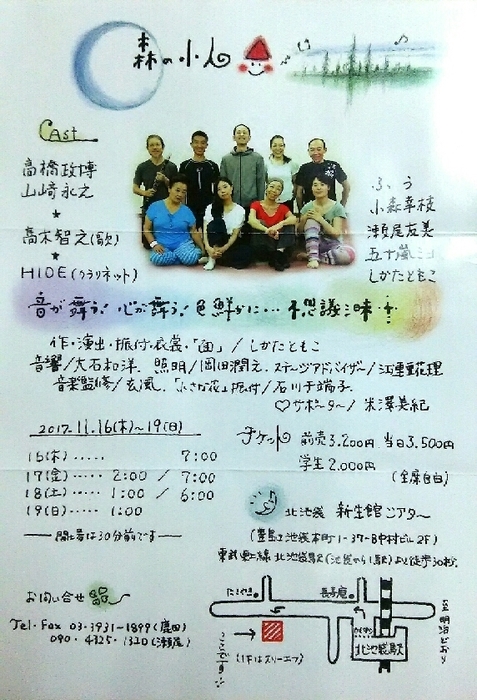 森の小人
Cast
高橋政博
山﨑永之
★
高木智之(歌)
★
HIDE(クラリネット)
ふう
小森幸枝
瀬尾友美
五十嵐
しかたともこ
音が舞う! 心が舞う! 色鮮かに… 不思議三昧…
作・演出・振付・衣裳・「画」/しかたともこ
音響/大石和洋 照明/岡田潤之 ステージアドバイザー/江重里花理
音楽監修/玄風 「小さな花」振付/石川千端子
♡サポーター/米澤美紀
2017. 11. 16(木)~19(日)
16(木)・・・・・ 7:00
17(金)・・・・ 2:00 / 7:00
18(土)・・・・ 1:00 / 6:00
19(日)・・・・ 1:00
開場は30分前です
チケット 前売3,200円 当日3,500円
学生2,000円
(全席自由)
北池袋 新生館シアター
(豊島区池袋本町1-37-8中村ビル2F)
東武東上線 北池袋駅(池袋から1駅)より徒歩30秒
お問い合せ
Tel・Fax 03-3931-1899(鹿田)
090-4325-1320(瀬尾)
長寿庵
ここです!
(1Fはスリーエフ)
北池袋駅
至 明治どおり